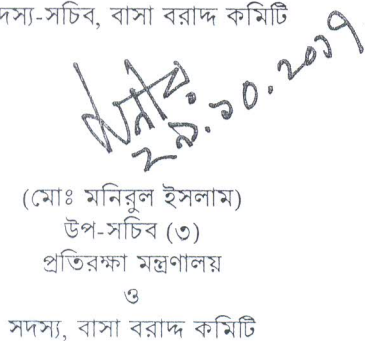 দস্য-সচিব, বাসা বরাদ্দ কমিটি
২৯.১০.২০১৭
(মোঃ মনিরুল ইসলাম)
উপ-সচিব (৩)
প্রতিরক্ষা মন্ত্রণালয়
ও
সদস্য, বাসা বরাদ্দ কমিটি